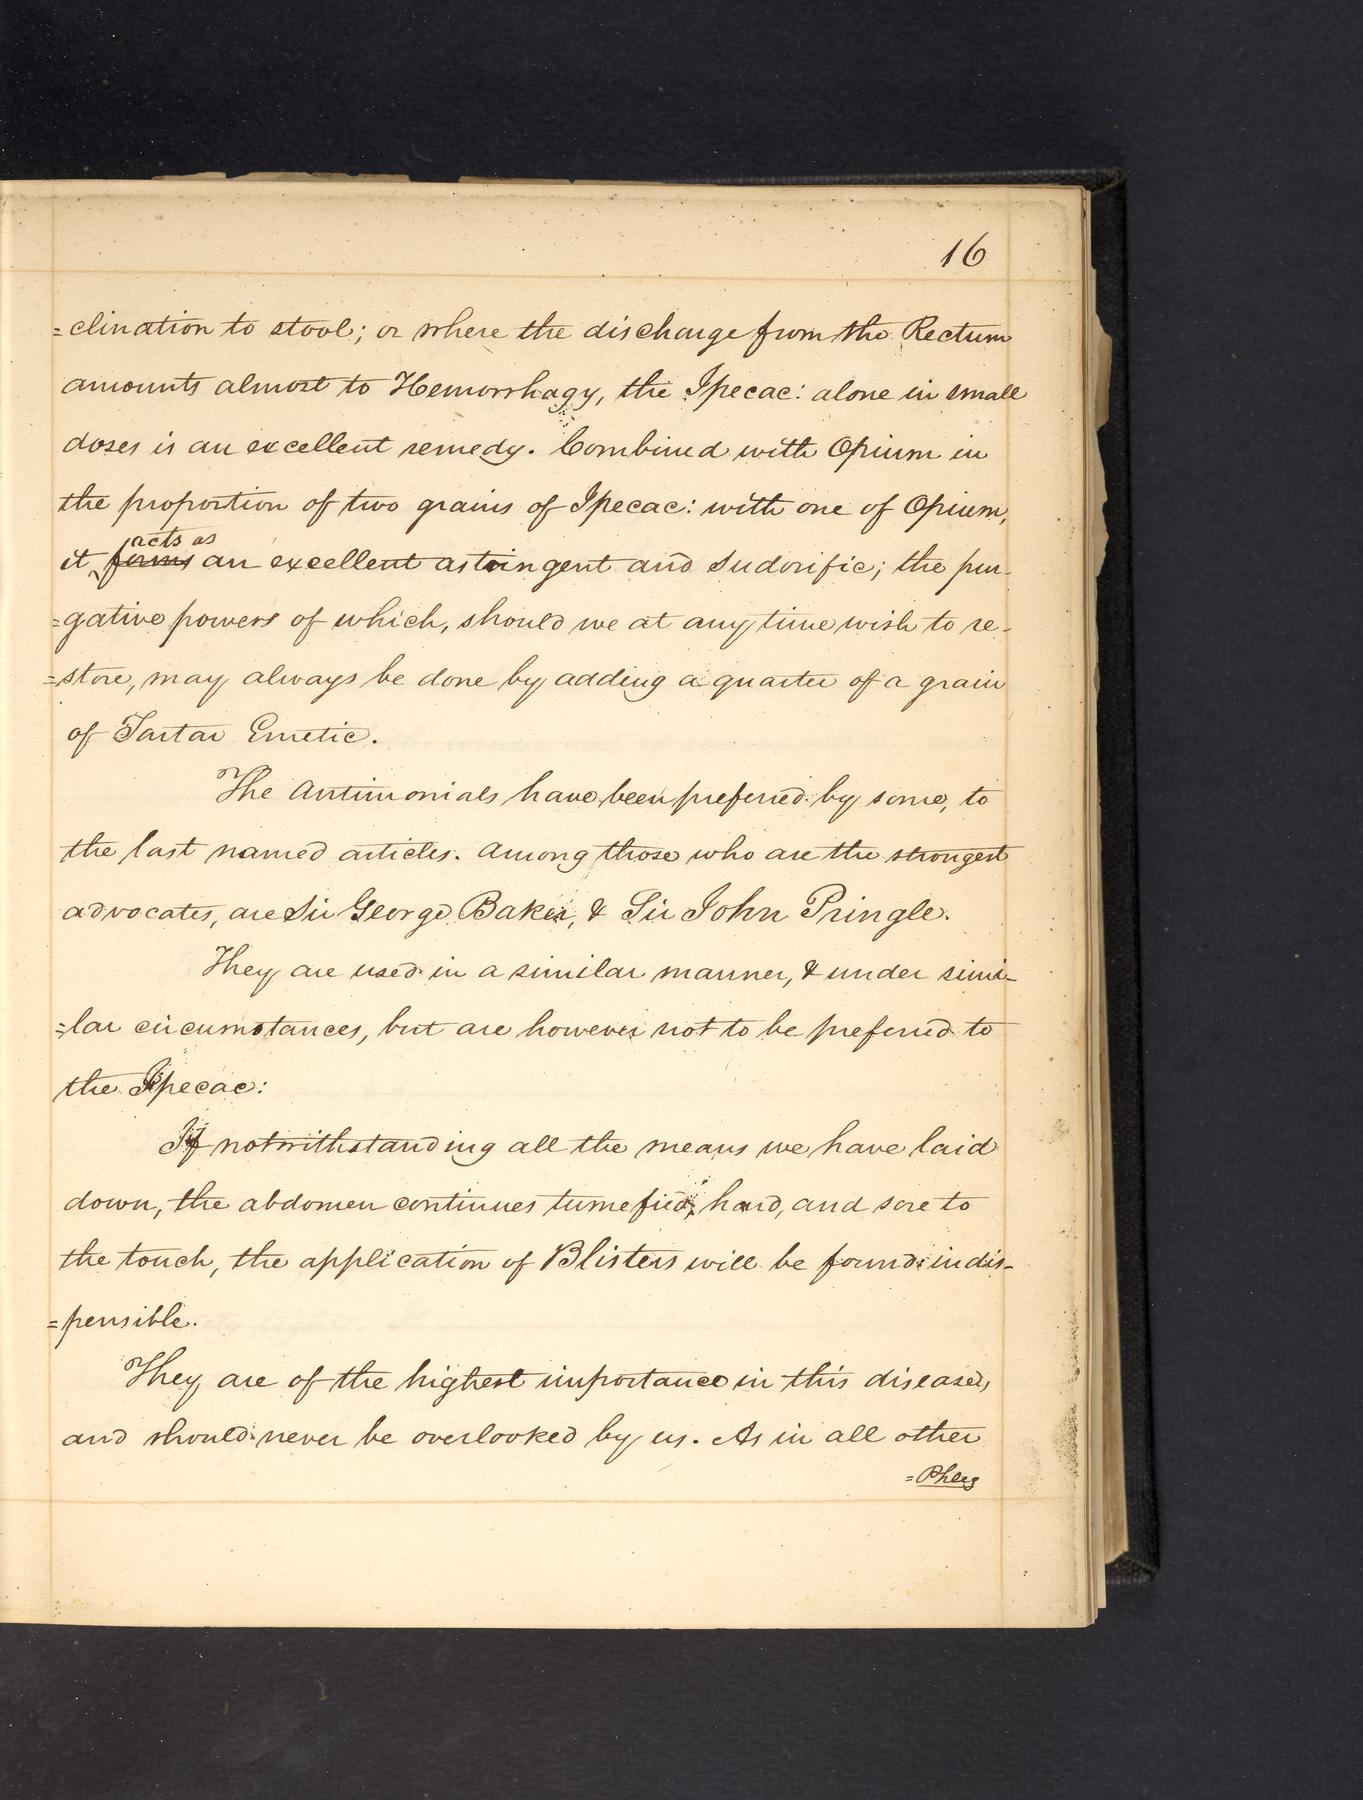 16
=clination to stool; or where the discharge from the Rectum
amounts almost to Hemorrhagy, the Ipecac: alone in small
doses is an excellent remedy. Combined with Opium in
the proportion of two grains of Ipecac: with one of Opium,
acts as
it forms an excellent astringent and Sudorific; the pur-
=gative powers of which, should we at any time wish to re-
=store, may always be done by adding a quarter of a grain
of Tartar Emetic.
The Antimonials have been preferred by some, to
the last named articles. Among those who are the strongest
advocates, are Sir George Baker, & Sir John Pringle.
They are used in a similar manner, & under simi-
=lar circumstances, but are however not to be preferred to
the Ipecac:
If notwithstanding all the means we have laid
down, the abdomen continues tumefied, hard, and sore to
the touch, the application of Blisters will be found indis-
=pensible.
They are of the highest importance in this disease,
and should never be overlooked by us. As in all other
=Phleg